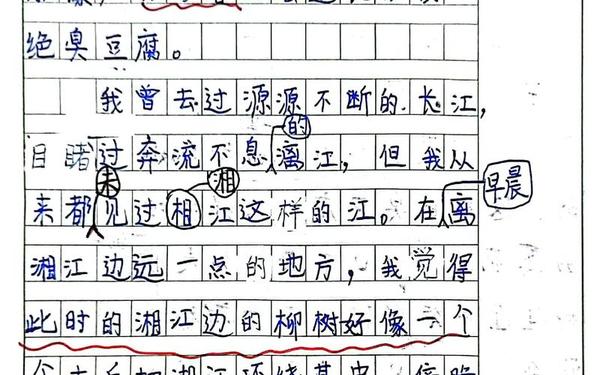 绝臭豆腐。
我曾去过源源不断的长江，
目睹过奔流不息漓江，但我从
的
来都见过相江这样的江。在离
未
湘
早晨
湘江边远一点的地方，我觉得
此时的湘江边的柳树好像一个